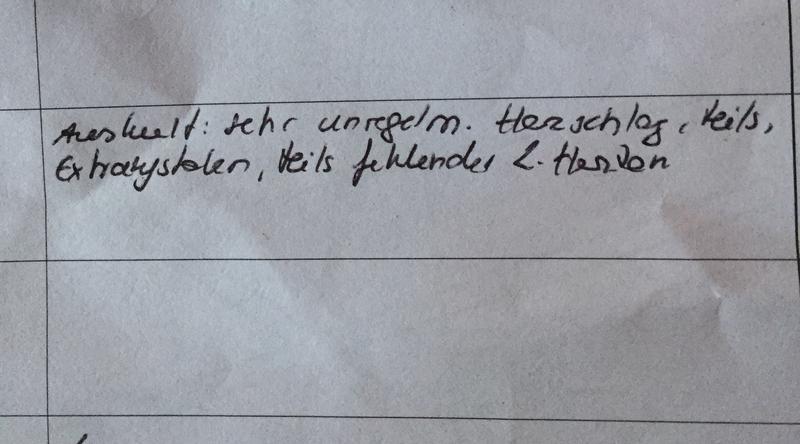 Auskult: sehr unregelm. Herzschlag, teils,
Extrasystolen, teils fehlender 2. Herzton